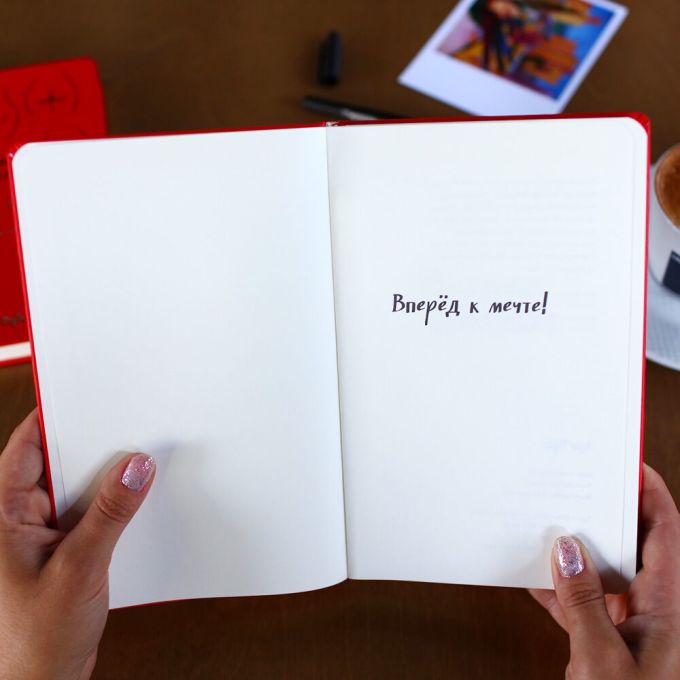 Вперёд к мечте!